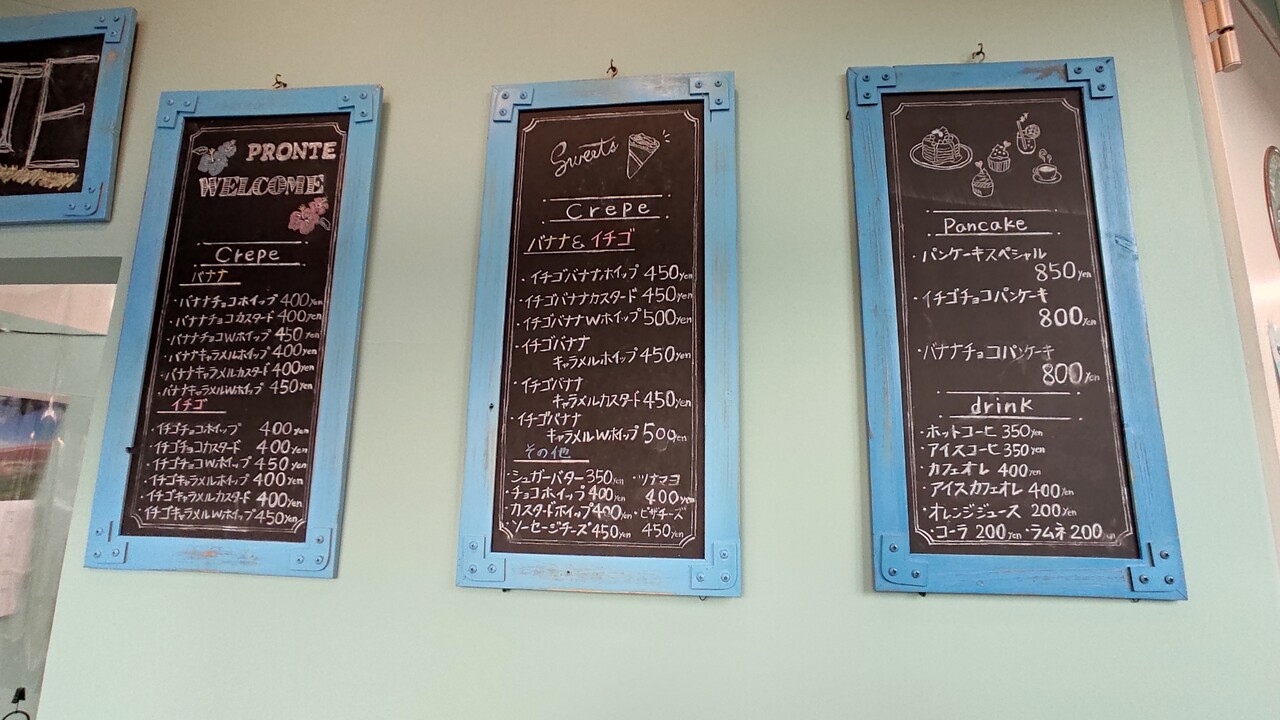 PRONTE
WELCOME
Crepe
バナナ
・バナナチョコホイップ 400yen
・バナナチョコカスタード 400yen
・バナナチョコWホイップ 450yen
・バナナキャラメルホイップ 400yen
・バナナキャラメルカスタード 400yen
・バナナキャラメルWホイップ 450yen
イチゴ
・イチゴチョコホイップ 400yen
・イチゴチョコカスタード 400yen
・イチゴチョコWホイップ 450yen
・イチゴキャラメルホイップ 400yen
・イチゴキャラメルカスタード 400yen
・イチゴキャラメルWホイップ 450yen
Sweets
Crepe
バナナ&イチゴ
・イチゴバナナホイップ 450yen
・イチゴバナナカスタード 450yen
・イチゴバナナWホイップ 500yen
・イチゴバナナ
キャラメルホイップ 450yen
・イチゴバナナ
キャラメルカスタード 450yen
・イチゴバナナ
キャラメルWホイップ 500yen
その他
・シュガーバター 350yen ・ツナマヨ
・チョコホイップ 400yen 400yen
・カスタードホイップ 400yen ・ピザチーズ
・ソーセージチーズ 450yen 450yen
Pancake
・パンケーキスペシャル
850yen
・イチゴチョコパンケーキ
800yen
・バナナチョコパンケーキ
800yen
drink
・ホットコーヒ 350yen
・アイスコーヒ 350yen
・カフェオレ 400yen
・アイスカフェオレ 400yen
・オレンジジュース 200yen
・コーラ 200yen ・ラムネ 200yen